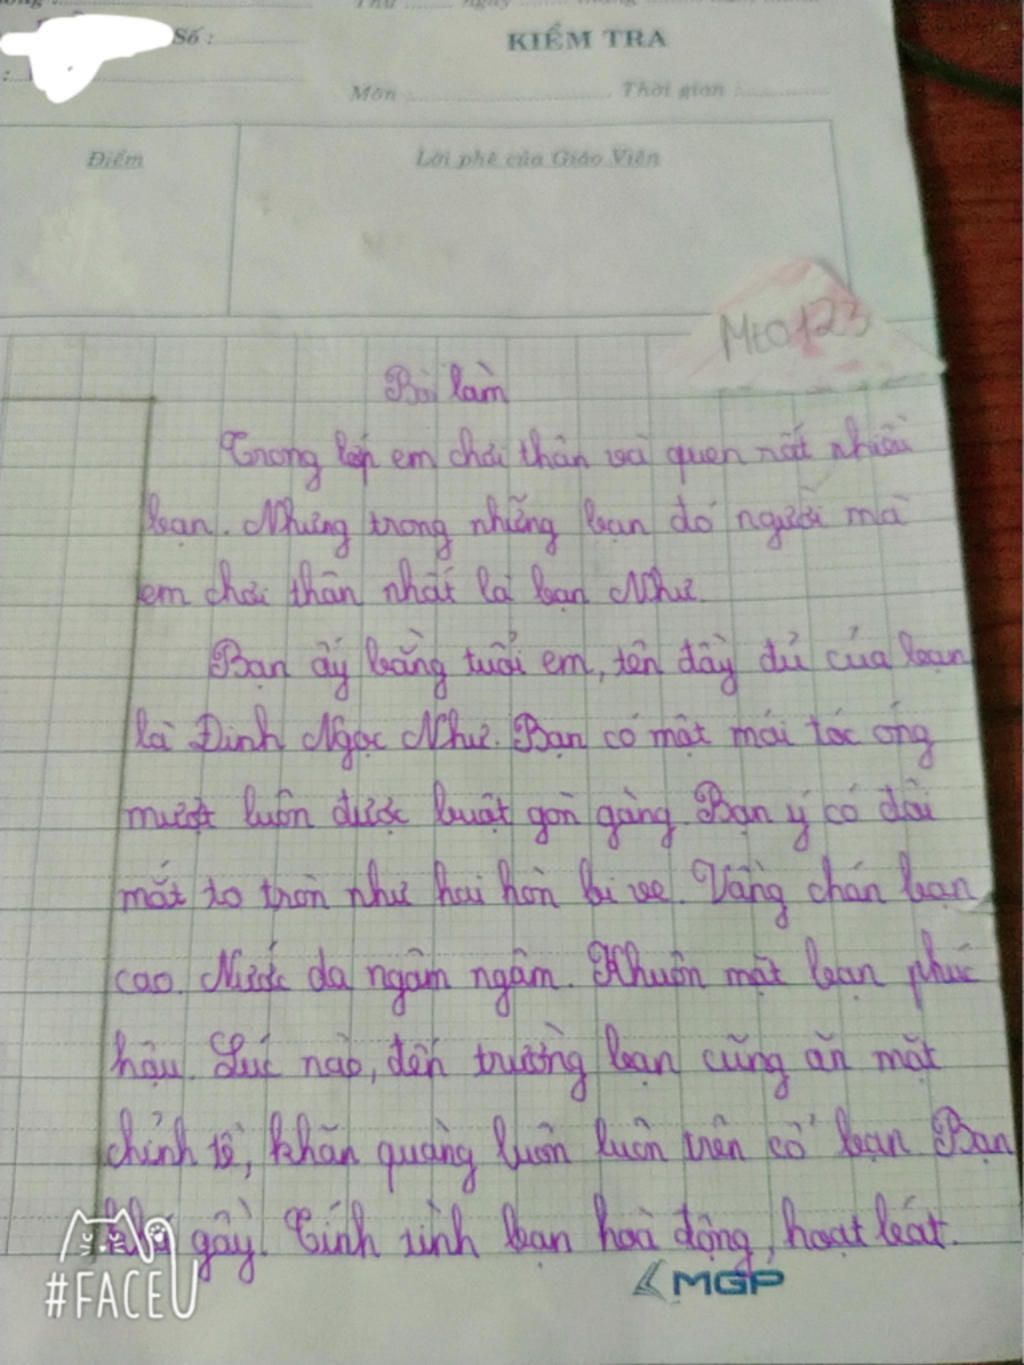 Số :
KIỂM TRA
Môn Thời gian :
Điểm
Lời phê của Giáo Viên
Mto123
Bài làm
Trong lớp em chơi thân và quen rất nhiều
bạn. Nhưng trong những bạn đó người mà
em chơi thân nhất là bạn Như.
Bạn ấy bằng tuổi em, tên đầy đủ của bạn
là Đinh Ngọc Như. Bạn có một mái tóc óng
mượt luôn được buật gòn gàng. Bạn ý có đôi
mắt to tròn như hai hòn bi ve. Vầng chán bạn
cao. Nước da ngâm ngâm. Khuôn mặt bạn phúc
hậu. Lúc nào, đến trường bạn cũng ăn mặt
chỉnh tề, khăn quàng luôn luôn trên cổ bạn. Bạn
gầy. Tính tình bạn hoà động, hoạt bát.
#FACEU
MGP